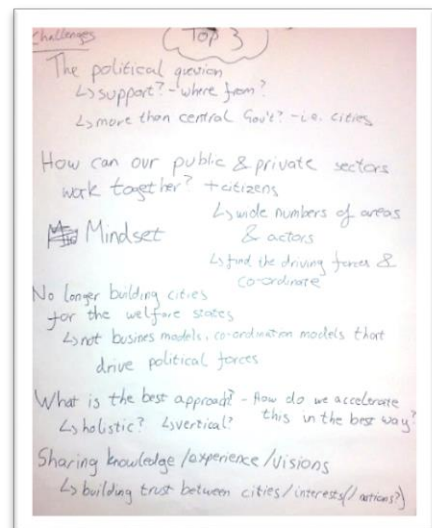 Challenges
Top 3
The political question
↳ support? - where from?
↳ more than central Gov't? - i.e. cities
How can our public & private sectors
work together? + citizens
↳ wide numbers of areas
& actors
Mindset
↳ find the driving forces &
co-ordinate
No longer building cities
for the welfare states
↳ not busines models, co-ordination models that
drive political forces
What is the best approach? - How do we accelerate
this in the best way?
↳ holistic? ↳ vertical?
Sharing knowledge / experience / visions
↳ building trust between cities / interests (/ actions?)